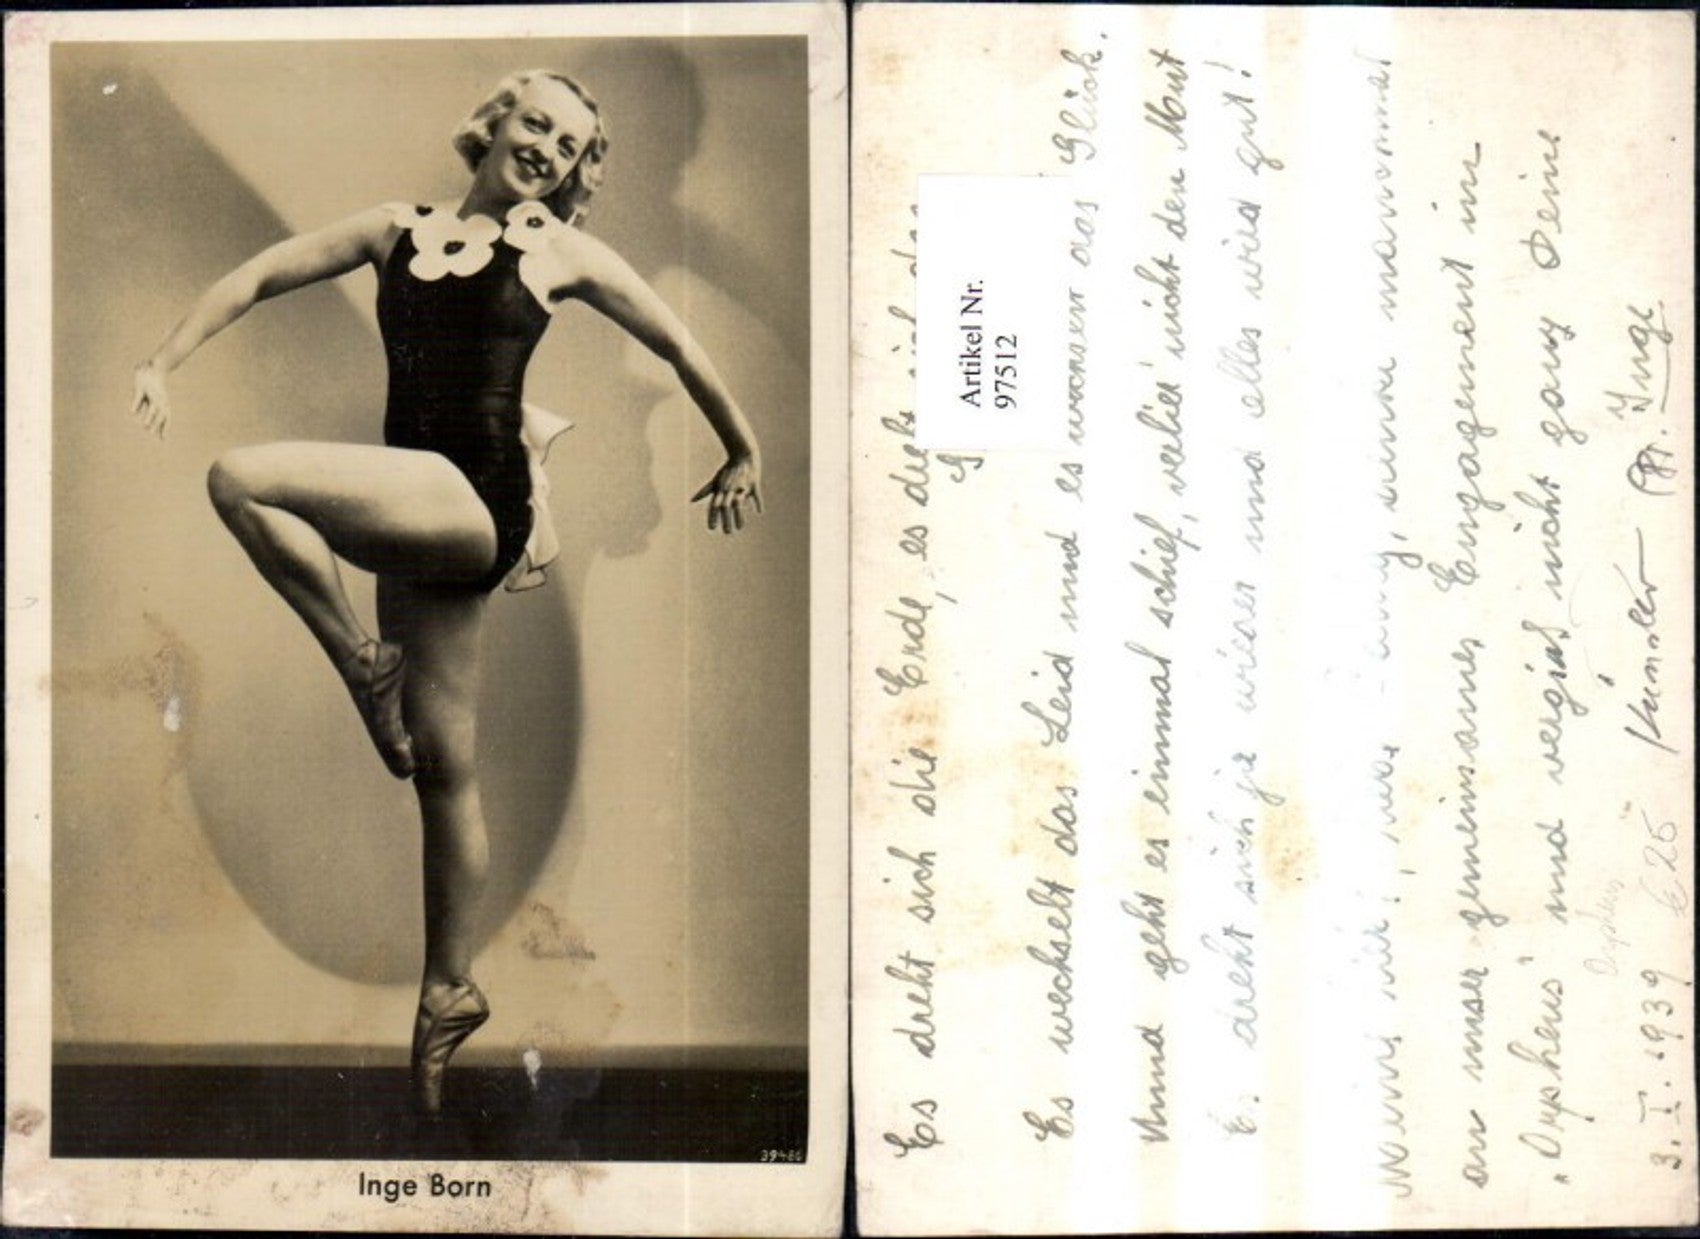 39480
Inge Born
Artikel Nr.
97512
Es dreht sich die Erde, es dreht sich das
G
Es wechselt das Leid und es wechselt das Glück.
Und geht es einmal schief, verlier' nicht den Mut
Es dreht sich ja wieder und alles wird gut!
manchmal
an unser gemeinsames Engagement im
„Orpheus" und vergiss nicht ganz Deine
Orpheus
Inge
3. I. 1939 € 25 Künstler